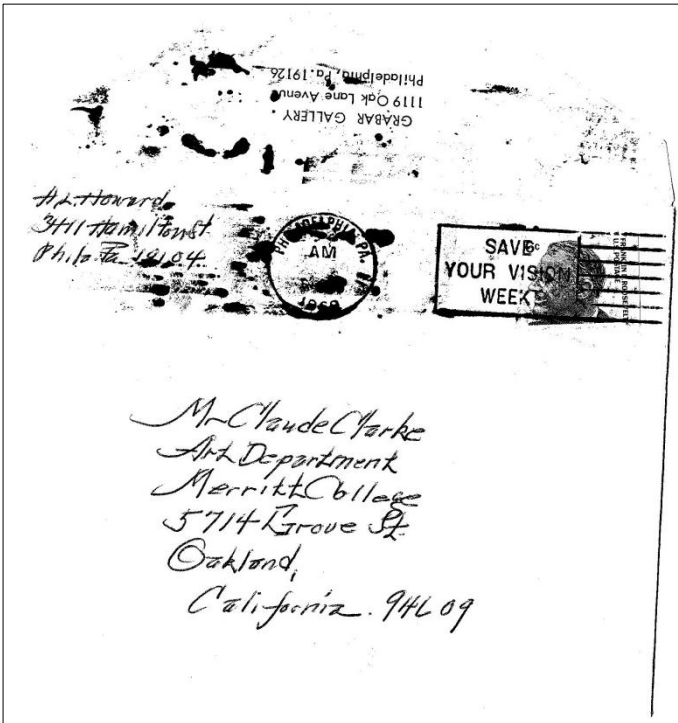 GRABAR GALLERY
1119 Oak Lane Avenue
Philadelphia, Pa. 19126
H. L. Howard
3411 Hamilton St.
Phila Pa 19104
PHILADELPHIA, PA.
AM
SAVE
YOUR VISION
WEEK
6c
FRANKLIN D. ROOSEVELT
U.S. POSTAGE
Mr Claude Clarke
Art Department
Merritt College
5714 Grove St.
Oakland,
California. 94609